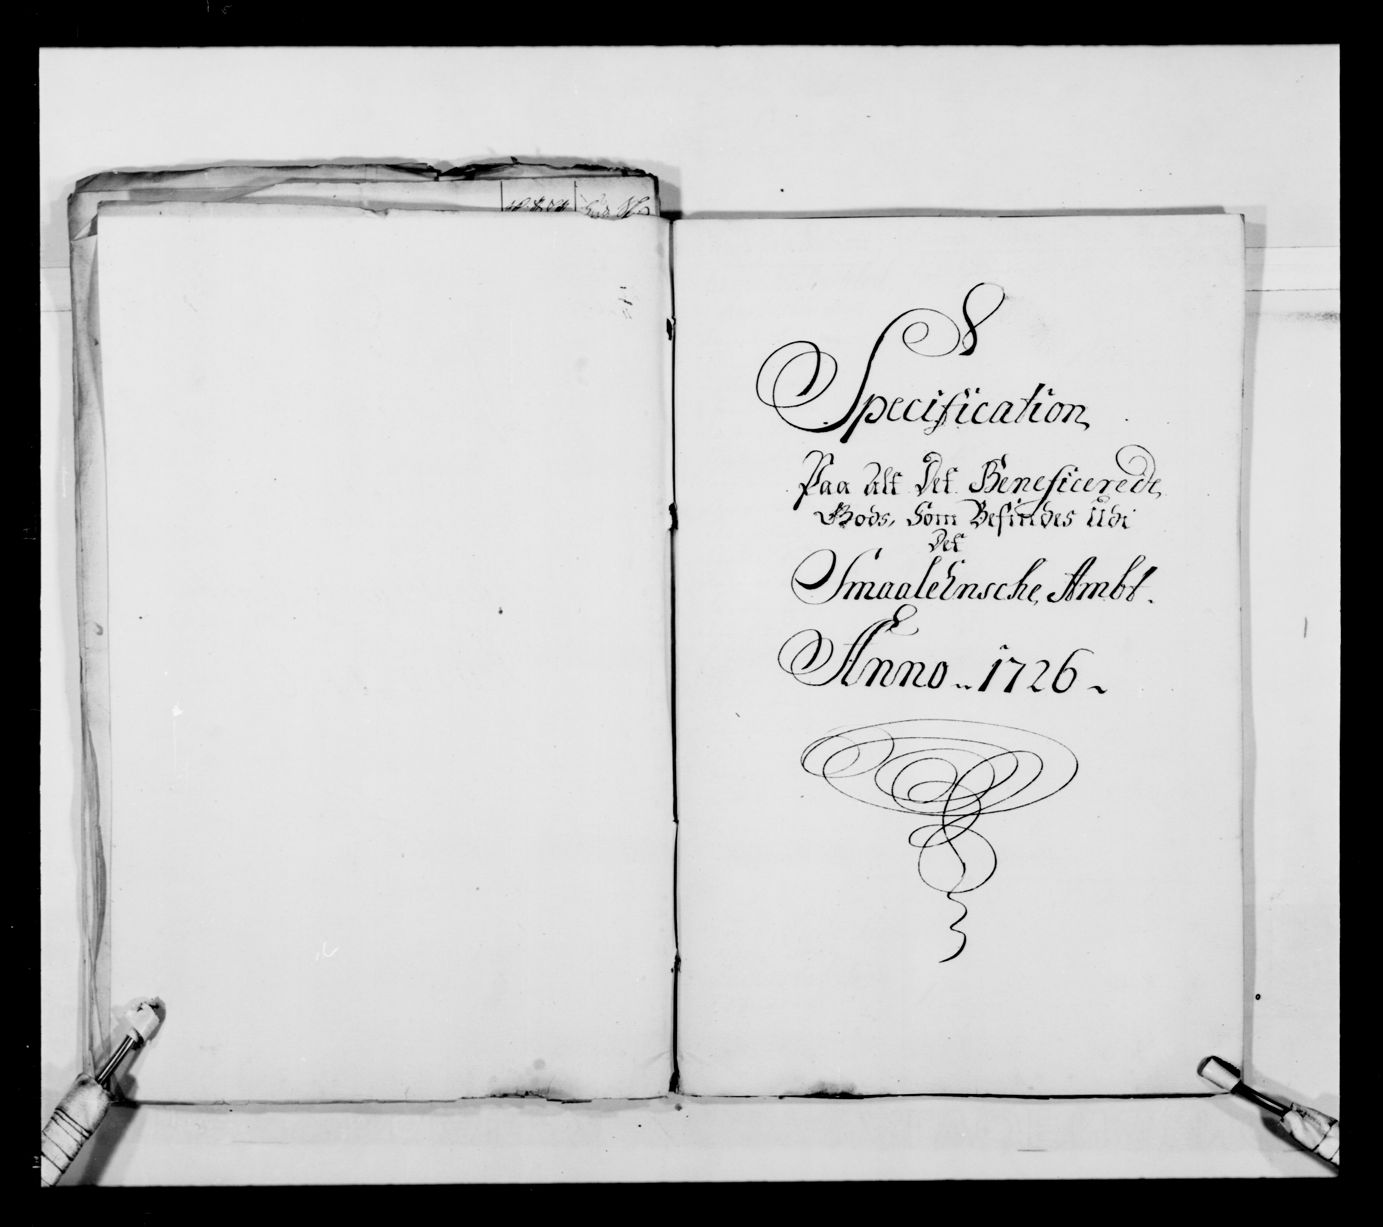 Specification
Paa alt Det Beneficerede
Gods, Som Befindes Udi
Det
Smaalehnsche Ambt.
Anno 1726